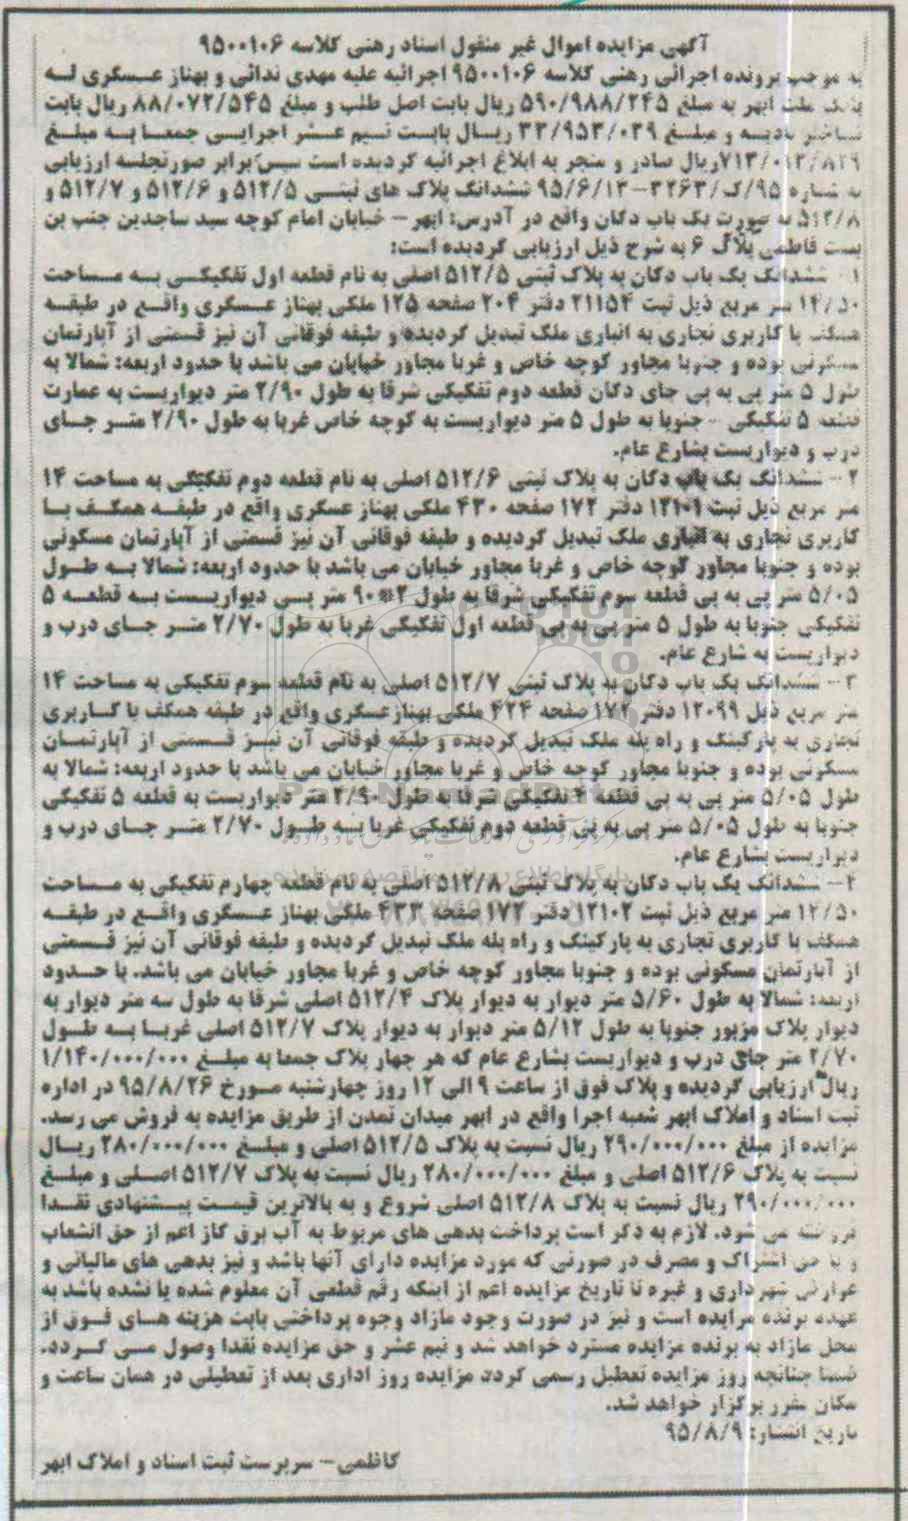 آگهی مزایده اموال غیر منقول اسناد رهنی کلاسه ۹۵۰۰۱۰۶
به موجب پرونده اجرائی رهنی کلاسه ۹۵۰۰۱۰۶ اجرائیه علیه مهدی ندائی و بهناز عسکری له
بانک ملت ابهر به مبلغ ۵۹۰/۹۸۸/۲۴۵ ریال بابت اصل طلب و مبلغ ۸۸/۰۷۲/۵۴۵ ریال بابت
تاخیر تادیه و مبلغ ۳۳/۹۵۳/۰۳۹ ریال بابت نیم عشر اجرایی جمعا به مبلغ
۷۱۳/۰۱۳/۸۲۹ریال صادر و منجر به ابلاغ اجرائیه گردیده است سپس برابر صورتجلسه ارزیابی
به شماره ۹۵/ک/۳۲۶۳-۹۵/۶/۱۳ ششدانگ پلاک های ثبتی ۵۱۲/۵ و ۵۱۲/۶ و ۵۱۲/۷ و
۵۱۲/۸ به صورت یک باب دکان واقع در آدرس: ابهر – خیابان امام کوچه سید ساجدین جنب بن
بست فاطمی پلاک ۶ به شرح ذیل ارزیابی گردیده است:
۱- ششدانگ یک باب دکان به پلاک ثبتی ۵۱۲/۵ اصلی به نام قطعه اول تفکیکی به مساحت
۱۴/۵۰ متر مربع ذیل ثبت ۲۱۱۵۴ دفتر ۲۰۴ صفحه ۱۲۵ ملکی بهناز عسکری واقع در طبقه
همکف با کاربری تجاری به انباری ملک تبدیل گردیده و طبقه فوقانی آن نیز قسمتی از آپارتمان
مسکونی بوده و جنوبا مجاور کوچه خاص و غربا مجاور خیابان می باشد با حدود اربعه: شمالا به
طول ۵ متر پی به پی جای دکان قطعه دوم تفکیکی شرقا به طول ۲/۹۰ متر دیواریست به عمارت
قطعه ۵ تفکیکی – جنوبا به طول ۵ متر دیواریست به کوچه خاص غربا به طول ۲/۹۰ متر جای
درب و دیواریست بشارع عام.
۲- ششدانگ یک باب دکان به پلاک ثبتی ۵۱۲/۶ اصلی به نام قطعه دوم تفکیکی به مساحت ۱۴
متر مربع ذیل ثبت ۱۲۱۰۱ دفتر ۱۷۲ صفحه ۴۳۰ ملکی بهناز عسکری واقع در طبقه همکف با
کاربری تجاری به انباری ملک تبدیل گردیده و طبقه فوقانی آن نیز قسمتی از آپارتمان مسکونی
بوده و جنوبا مجاور کوچه خاص و غربا مجاور خیابان می باشد با حدود اربعه: شمالا به طول
۵/۰۵ متر پی به پی قطعه سوم تفکیکی شرقا به طول ۲*۹۰ متر پی دیواریست به قطعه ۵
تفکیکی جنوبا به طول ۵ متر پی به پی قطعه اول تفکیکی غربا به طول ۲/۷۰ متر جای درب و
دیواریست به شارع عام.
۳- ششدانگ یک باب دکان به پلاک ثبتی ۵۱۲/۷ اصلی به نام قطعه سوم تفکیکی به مساحت ۱۴
متر مربع ذیل ۱۲۰۹۹ دفتر ۱۷۲ صفحه ۴۲۴ ملکی بهناز عسکری واقع در طبقه همکف با کاربری
تجاری به پارکینگ و راه پله ملک تبدیل گردیده و طبقه فوقانی آن نیز قسمتی از آپارتمان
مسکونی بوده و جنوبا مجاور کوچه خاص و غربا مجاور خیابان می باشد با حدود اربعه: شمالا به
طول ۵/۰۵ متر پی به پی قطعه ۴ تفکیکی شرقا به طول ۲/۹۰ متر دیواریست به قطعه ۵ تفکیکی
جنوبا به طول ۵/۰۵ متر پی به پی قطعه دوم تفکیکی غربا به طول ۲/۷۰ متر جای درب و
دیواریست بشارع عام.
۴- ششدانگ یک باب دکان به پلاک ثبتی ۵۱۲/۸ اصلی به نام قطعه چهارم تفکیکی به مساحت
۱۲/۵۰ متر مربع ذیل ثبت ۱۲۱۰۲ دفتر ۱۷۲ صفحه ۴۳۳ ملکی بهناز عسکری واقع در طبقه
همکف با کاربری تجاری به پارکینگ و راه پله ملک تبدیل گردیده و طبقه فوقانی آن نیز قسمتی
از آپارتمان مسکونی بوده و جنوبا مجاور کوچه خاص و غربا مجاور خیابان می باشد. با حدود
اربعه: شمالا به طول ۵/۶۰ متر دیوار به دیوار پلاک ۵۱۲/۴ اصلی شرقا به طول سه متر دیوار به
دیوار پلاک مزبور جنوبا به طول ۵/۱۲ متر دیوار به دیوار پلاک ۵۱۲/۷ اصلی غربا به طول
۲/۷۰ متر جای درب و دیواریست بشارع عام که هر چهار پلاک جمعا به مبلغ ۱/۱۴۰/۰۰۰/۰۰۰
ریال ارزیابی گردیده و پلاک فوق از ساعت ۹ الی ۱۲ روز چهارشنبه مورخ ۹۵/۸/۲۶ در اداره
ثبت اسناد و املاک ابهر شعبه اجرا واقع در ابهر میدان تمدن از طریق مزایده به فروش می رسد.
مزایده از مبلغ ۲۹۰/۰۰۰/۰۰۰ ریال نسبت به پلاک ۵۱۲/۵ اصلی و مبلغ ۲۸۰/۰۰۰/۰۰۰ ریال
نسبت به پلاک ۵۱۲/۶ اصلی و مبلغ ۲۸۰/۰۰۰/۰۰۰ ریال نسبت به پلاک ۵۱۲/۷ اصلی و مبلغ
۲۹۰/۰۰۰/۰۰۰ ریال نسبت به پلاک ۵۱۲/۸ اصلی شروع و به بالاترین قیمت پیشنهادی نقدا
فروخته می شود. لازم به ذکر است پرداخت بدهی های مربوط به آب برق گاز اعم از حق انشعاب
و یا حق اشتراک و مصرف در صورتی که مورد مزایده دارای آنها باشد و نیز بدهی های مالیاتی و
عوارض شهرداری و غیره تا تاریخ مزایده اعم از اینکه رقم قطعی آن معلوم شده یا نشده باشد به
عهده برنده مزایده است و نیز در صورت وجود مازاد وجوه پرداختی بابت هزینه های فوق از
محل مازاد به برنده مزایده مسترد خواهد شد و نیم عشر و حق مزایده نقدا وصول می گردد.
ضمنا چنانچه روز مزایده تعطیل رسمی گردد مزایده روز اداری بعد از تعطیلی در همان ساعت و
مکان مقرر برگزار خواهد شد.
تاریخ انتشار: ۹۵/۸/۹
کاظمی – سرپرست ثبت اسناد و املاک ابهر